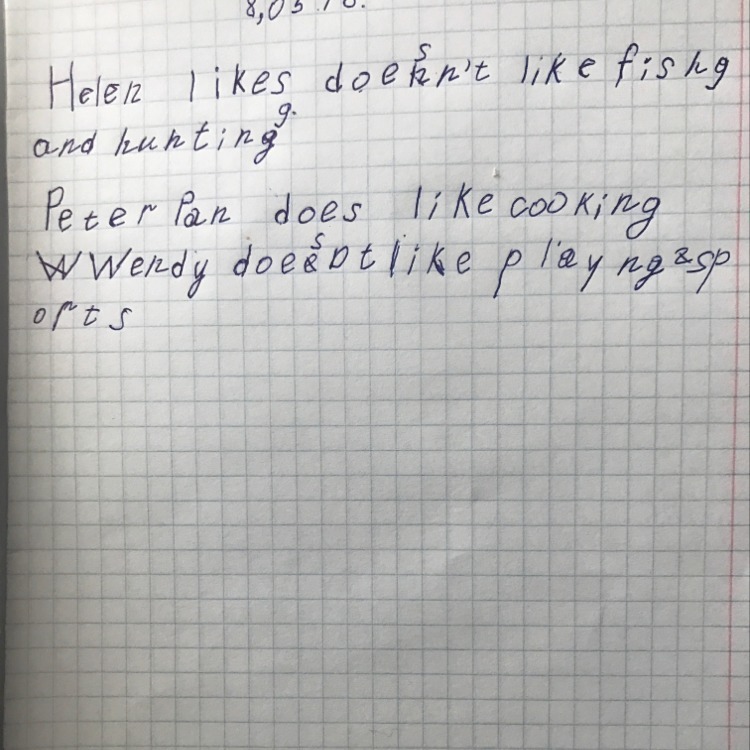 Helen likes doesn't like fishg
and hunting
Peter Pan does like cooking
Wendy doesnt like playng sp
orts